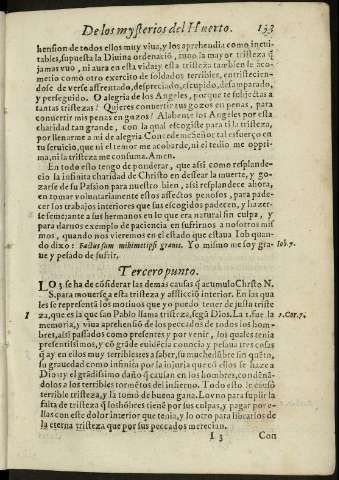 De los mysterios del Huerto. 133
hension de todos ellos muy viua, y los aprehendia como ineui-
tables, supuesta la Diuina ordenació, tuuo la mayor tristeza q̃
jamas vuo, ni aura en esta vida: y esta tristeza tambien le aco-
metio como otro exercito de soldados terribles, entristecien-
dose de verse affrentado, despreciado, escupido, desamparado,
y perseguido. O alegria de los Angeles, porque te subjectas a
tantas tristezas? Quieres conuertir tus gozos en penas, para
conuertir mis penas en gozos? Alabente los Angeles por essa
charidad tan grande, con la qual escogiste para ti la tristeza,
por llenarme a mi de alegria Concedeme señor tal esfuerço en
tu seruicio, que ni el temor me acobarde, ni el tedio me oppri-
ma, ni la tristeza me consuma. Amen.
En todo esto tengo de ponderar, que assi como resplande-
cio la infinita charidad de Christo en dessear la muerte, y go-
zarse de su Passion para nuestro bien, assi resplandece ahora,
en tomar voluntariamente estos affectos penosos, para pade-
cer los trabajos interiores que sus escogidos padecen, y hazer-
se semejante a sus hermanos en lo que era natural sin culpa, y
para darnos exemplo de paciencia en sufrirnos a nosotros mis
mos, quando nos vieremos en el estado que estaua Iob quan-
do dixo: Factus sum mihimetipsi grauis. Yo mismo me soy gra-
Iob. 7.
ue y pesado de sufrir.
Tercero punto.
LO 3. se ha de cósiderar las demas causas q̃ acumulo Christo N.
S. para mouerse a esta tristeza y afflictió interior. En las qua
les se representā los motiuos que yo puedo tener de justa triste
za, que es la que san Pablo llama tristeza, segũ Dios. La 1. fue la
1
2. Cor. 7.
memoria, y viua aprehensió de los pecados de todos los hom-
bres, assi passados como presentes y por venir, los quales tenia
presentissimos, y có grãde euidécia conocia y pesaua tres cosas
q̃ ay en ellos muy terribles: es a saber, su muchedũbre sin quẽto,
su grauedad como infinita por la injuria que có ellos se haze a
Dios: y el grãdissimo daño q̃ causan en los hombres, condenã-
dolos a los terribles tormẽtos del infierno. Todo esto le causó
terrible tristeza, y la tomó de buena gana. Lo vno para suplir la
falta de tristeza q̃ los hõbres tienẽ por sus culpas, y pagar por e-
llas con este dolor interior que tenia, y lo otro para librarlos de
la eterna tristeza que por sus peccados merecian.
I 3 Con